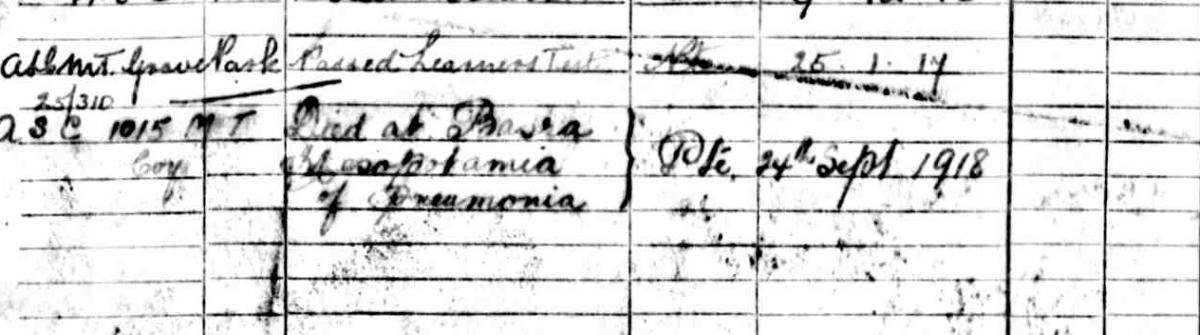 ASC MT. Grove Park Passed Learners Test Pte 25 1 17
25/310
A S C 1015 M T Died at Basra
Coy Mesopotamia Pte. 24th Sept 1918
of Pneumonia